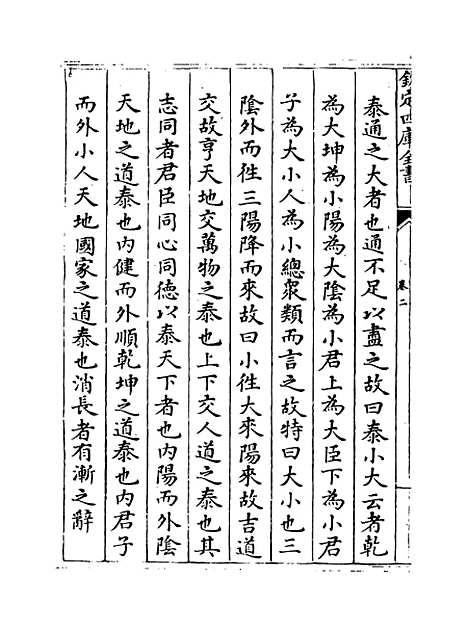 欽定四庫全書
卷二
泰通之大者也通不足以盡之故曰泰小大云者乾
為大坤為小陽為大陰為小君上為大臣下為小君
子為大小人為小總衆類而言之故特曰大小也三
陰外而徃三陽降而來故曰小徃大來陽來故吉道
交故亨天地交萬物之泰也上下交人道之泰也其
志同者君臣同心同德以泰天下者也内陽而外陰
天地之道泰也内健而外順乾坤之道泰也内君子
而外小人天地國家之道泰也消長者有漸之辭